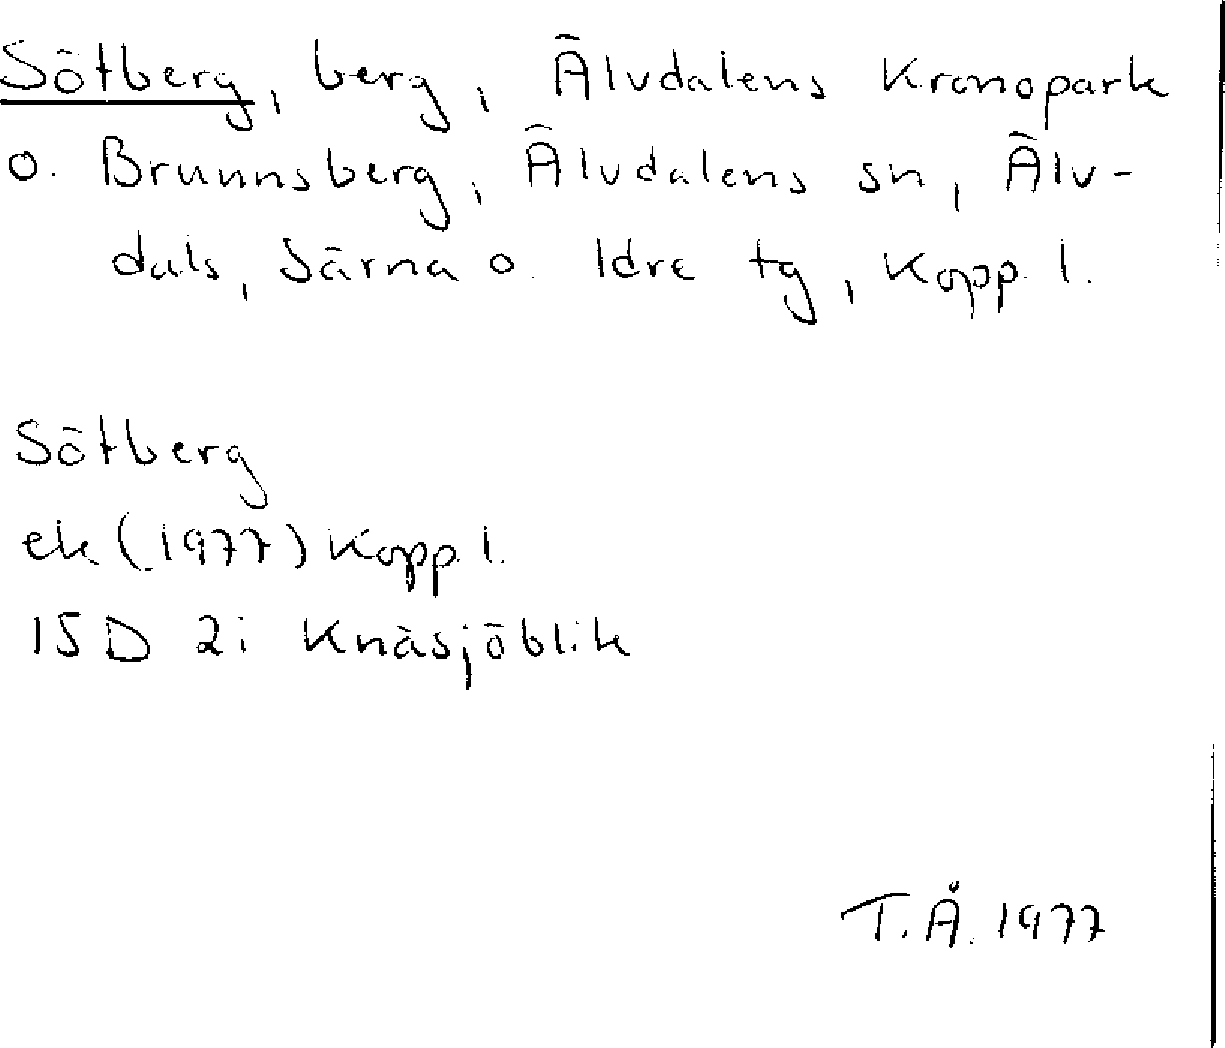 Sötberg, berg, Älvdalens Kronopark
o. Brunnsberg, Älvdalens sn, Älv-
dals, Särna o. Idre tg, Kopp. l.
Sötberg
ek (1977) Kopp l.
15 D 2i Knäsjöblik
T.Å. 1977